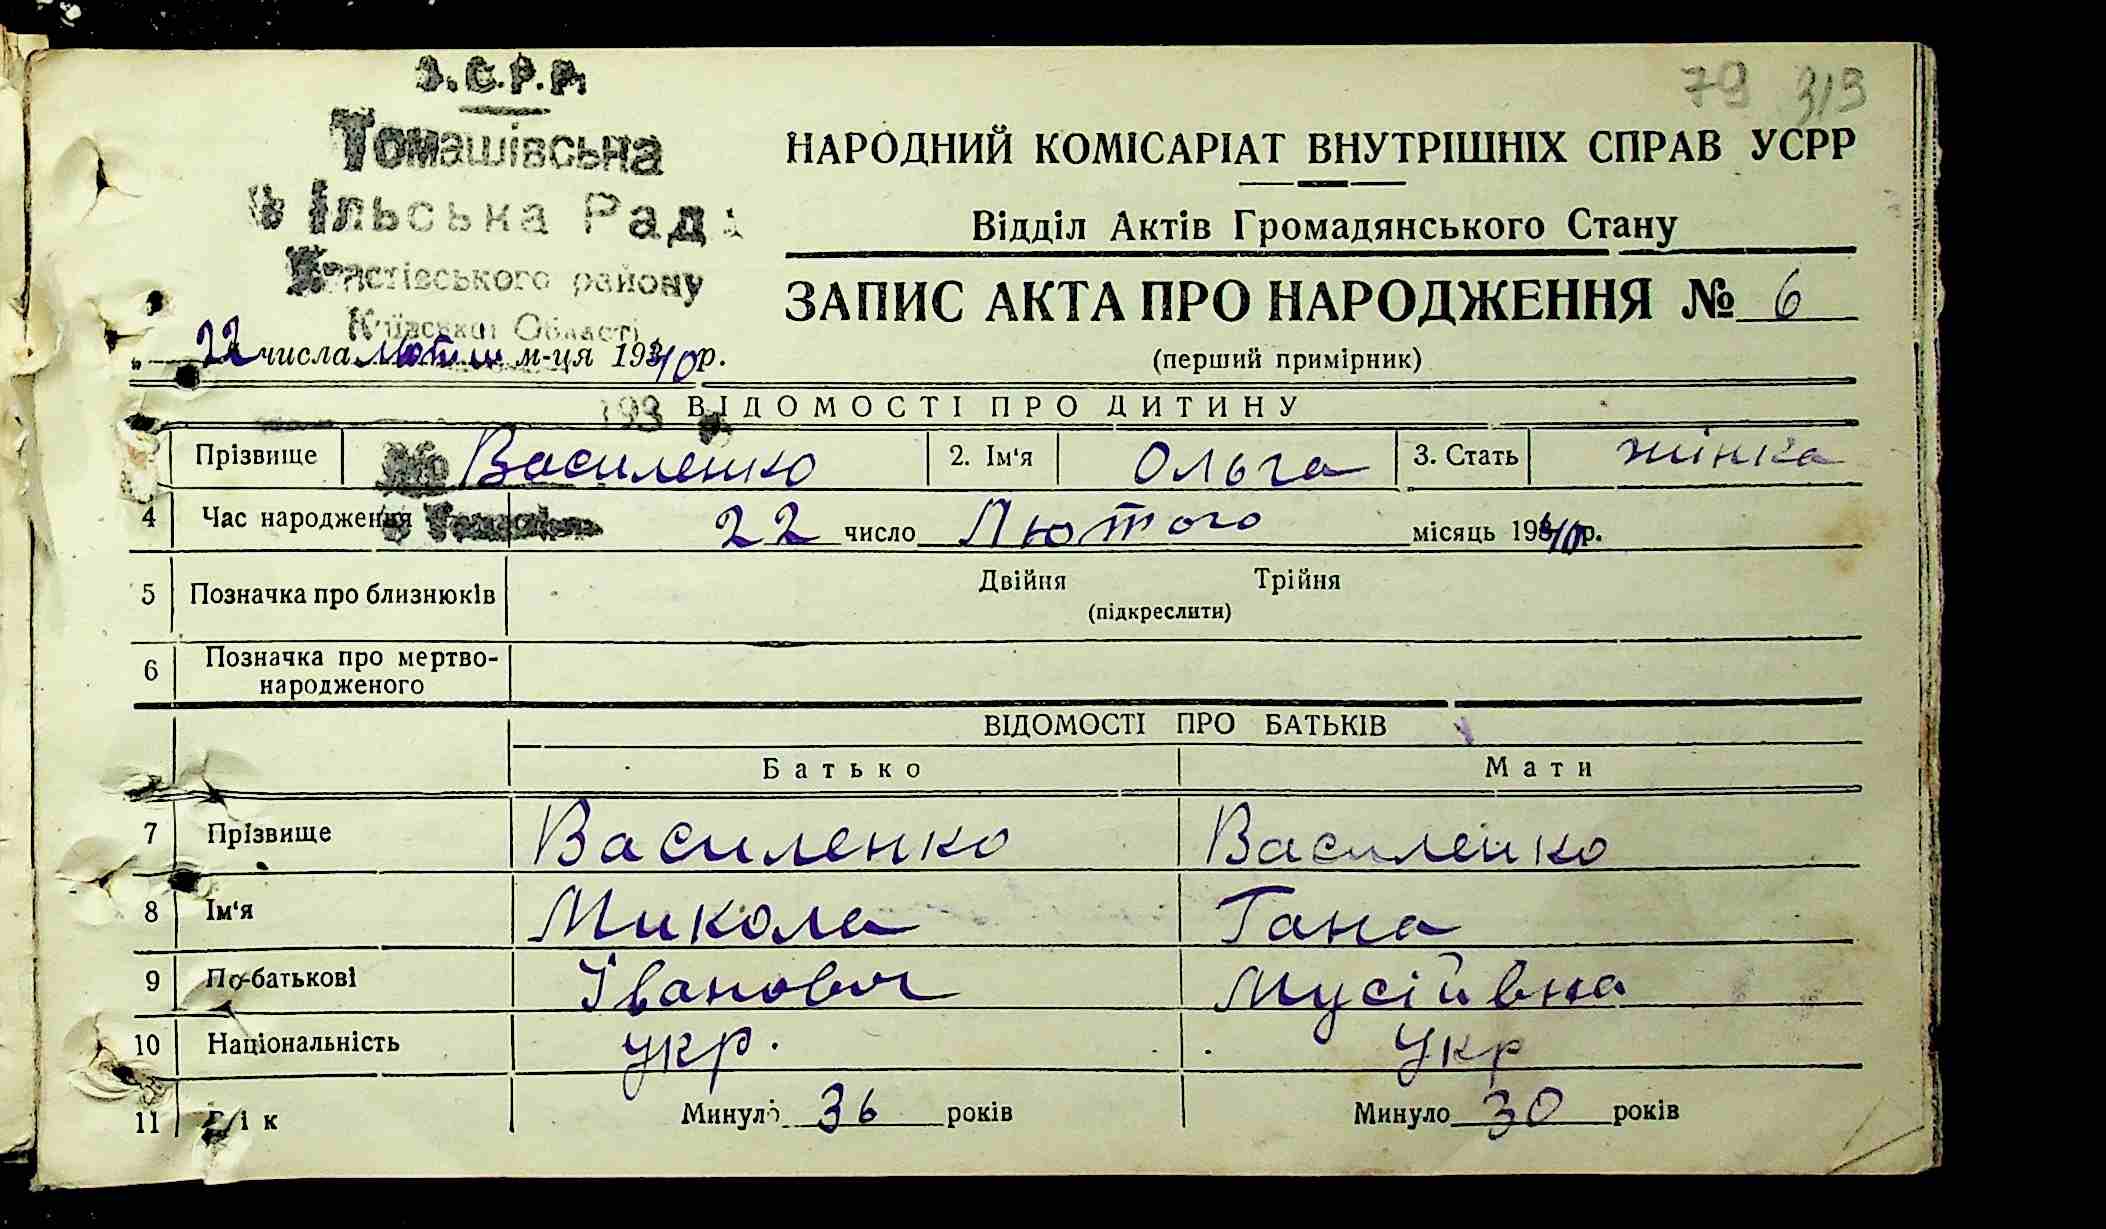 У.С.Р.Р.
Томашівська
Сільська Рада
Фастівського району
Київської Області
79 313
НАРОДНИЙ КОМІСАРІАТ ВНУТРІШНІХ СПРАВ УСРР
Відділ Актів Громадянського Стану
ЗАПИС АКТА ПРО НАРОДЖЕННЯ № 6
„ 22 числа лютня м-ця 1940 р.
(перший примірник)
193
ВІДОМОСТІ ПРО ДИТИНУ
Прізвище Василенко 2. Ім'я Ольга 3. Стать жінка
4 Час народження 22 число Лютого місяць 1940 р.
5 Позначка про близнюків Двійня Трійня
(підкреслити)
6 Позначка про мертво-
народженого
ВІДОМОСТІ ПРО БАТЬКІВ
Батько Мати
7 Прізвище Василенко Василенко
8 Ім'я Микола Гана
9 По-батькові Іванович Мусіївна
10 Національність укр. Укр
11 Рік Минуло 36 років Минуло 30 років